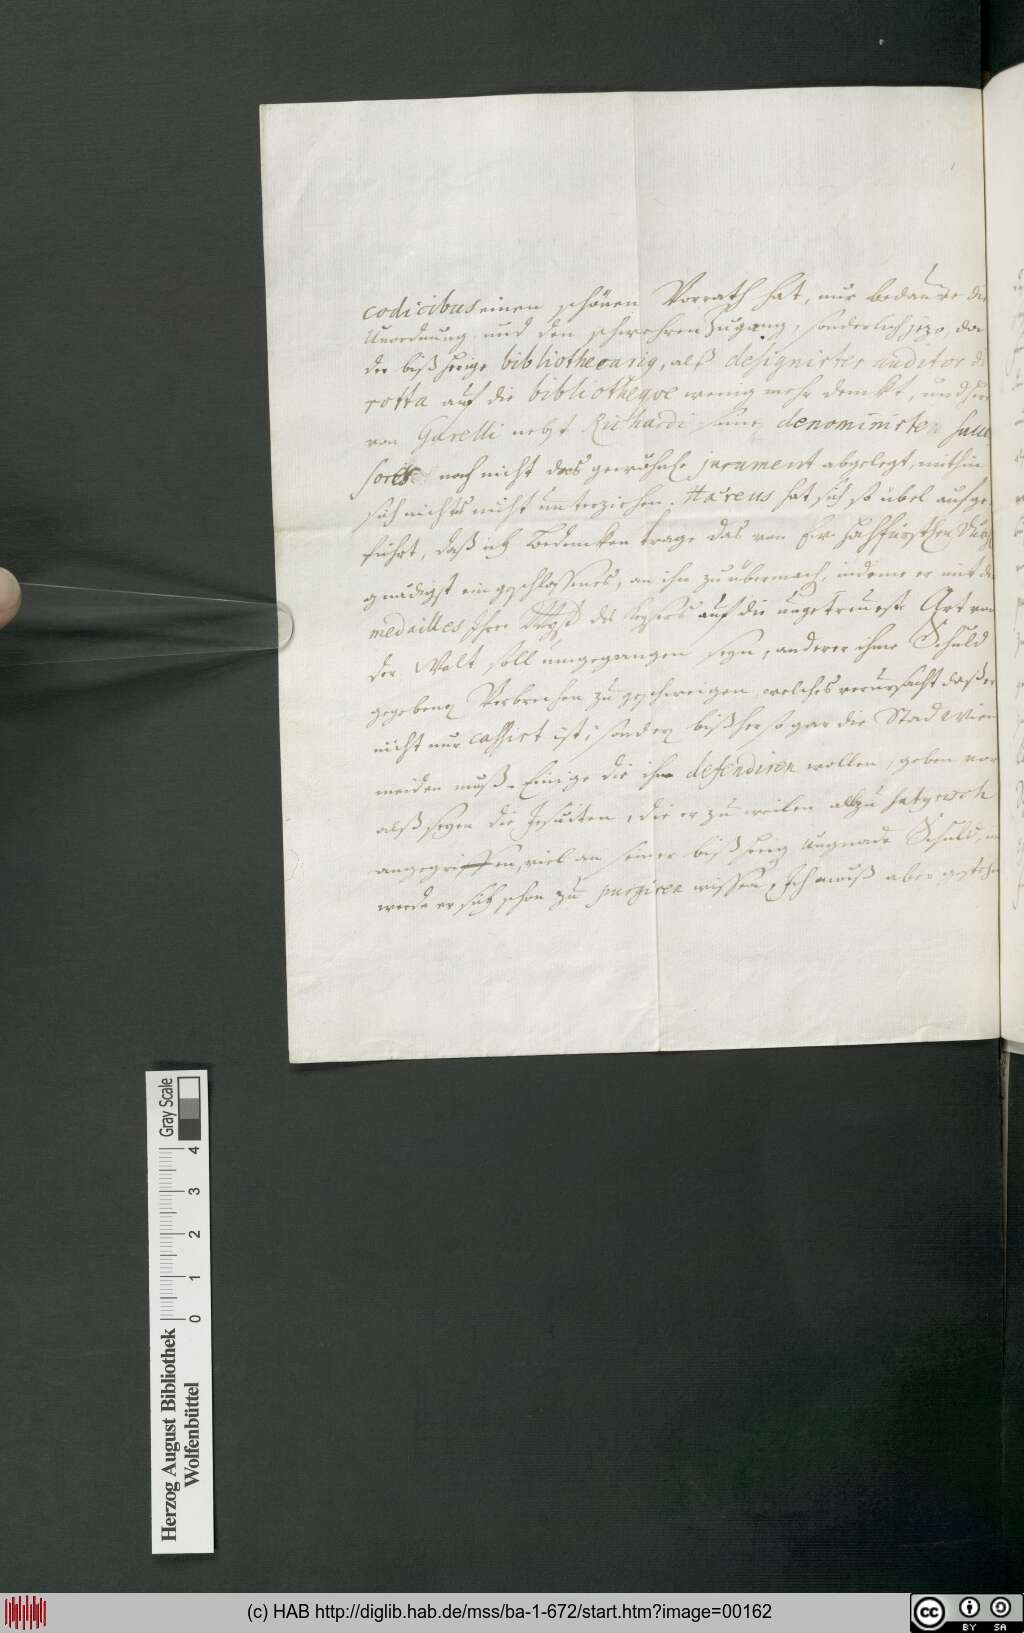 codicibus einen schönen Vorrath hat, nur bedaure die
Unordnung, und den schwehren Zugang, sonderlich jezo, da
der bißherige bibliothecarig, alß designirter auditor di
rotta auf die bibliotheqve wenig mehr denckt, und herr
von Garelli nebst Richardi seine denominirte succes
sores noch nicht das gewehnle jurament abgelegt, mithin
sich nichts nicht unterziehen. Hæreus hat sich so übel aufge
führt, daß ich Bedencken trage das von Ew. Hochfürstlen Durchl
gnädigst eingeschlossenes, an ihn zu übermach, indeme er mit den
medailles Ihro Mayst des Keysers auf die ungetreueste Art von
der Welt soll umgegangen seyn, anderer ihme Schuld
gegebene Verbrechen zu geschweigen, welches verursacht daß er
nicht nur cassirt ist, sondern bißher so gar die Stad Wien
meiden muß. Einige die ihn defendiren wollen, geben vor
alß seyen die Jesuiten, die er zu weilen allzu satyrisch
angegriffen, viel an seiner bißherig Ungnade Schuld, und
werde er sich schon zu purgiren wissen, Ich muß aber gestehen
Herzog August Bibliothek
Wolfenbüttel
0 1 2 3 4
Gray Scale
(c) HAB http://diglib.hab.de/mss/ba-1-672/start.htm?image=00162
cc BY SA